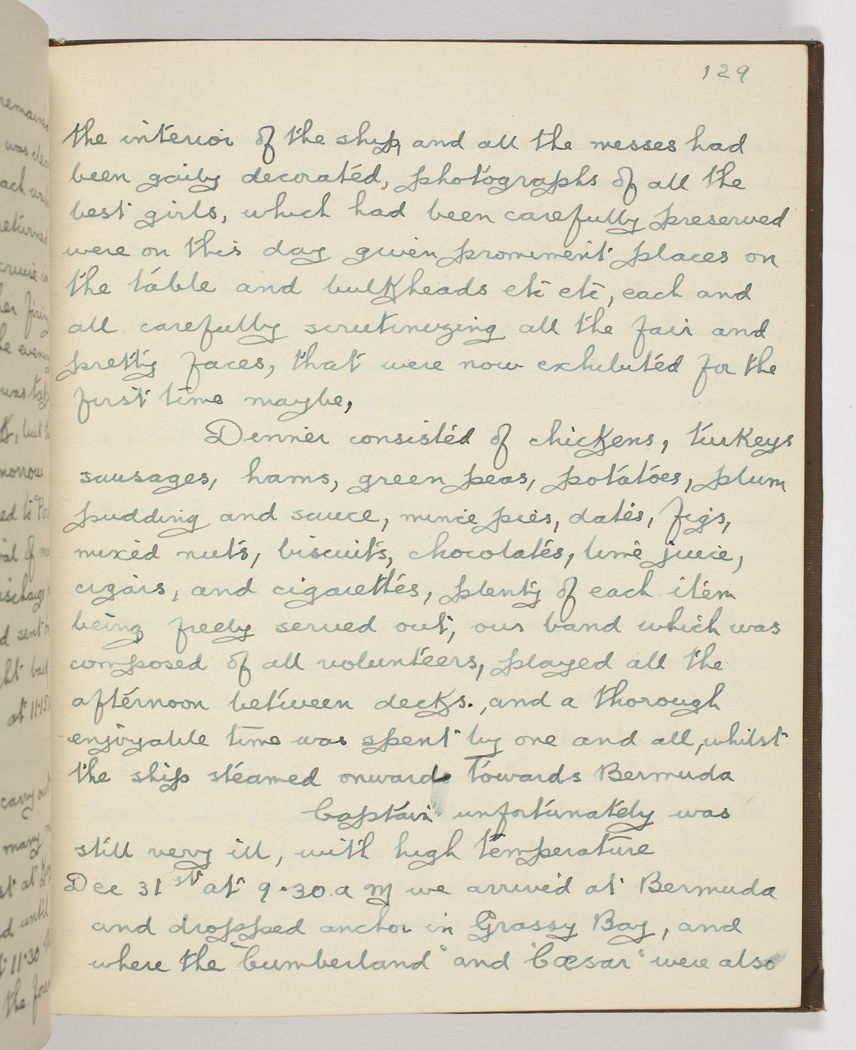 129
the interior of the ship, and all the messes had
been gaily decorated, photographs of all the
best girls, which had been carefully preserved
were on this day given prominent places on
the table and bulkheads etc etc, each and
all carefully scrutinizing all the fair and
pretty faces, that were now exhibited for the
first time maybe,
Dinner consisted of chickens, turkeys
sausages, hams, green peas, potatoes, plum
pudding and sauce, mince pies, dates, figs,
mixed nuts, biscuits, chocolates, lime juice,
cigars, and cigarettes, plenty of each item
being freely served out, our band which was
composed of all volunteers, played all the
afternoon between decks., and a thorough
enjoyable time was spent by one and all, whilst
the ship steamed onward towards Bermuda
Captain unfortunately was
still very ill, with high temperature
Dec 31st at 9.30.a m we arrived at Bermuda
and dropped anchor in Grassy Bay, and
where the "Cumberland" and "Cæsar" were also
remained
was
ach
returned
cruise in
firing
evening
was
but
morrow
ed to
of
discharge
d sent
ht
at 11.15
carry out
many
st at
d until
11.30
the